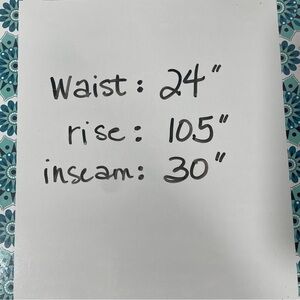 Waist: 24"
rise: 10.5"
inseam: 30"